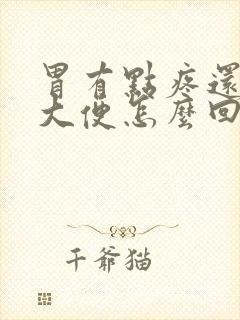 胃有點疼還
大便怎麼回
千爺猫